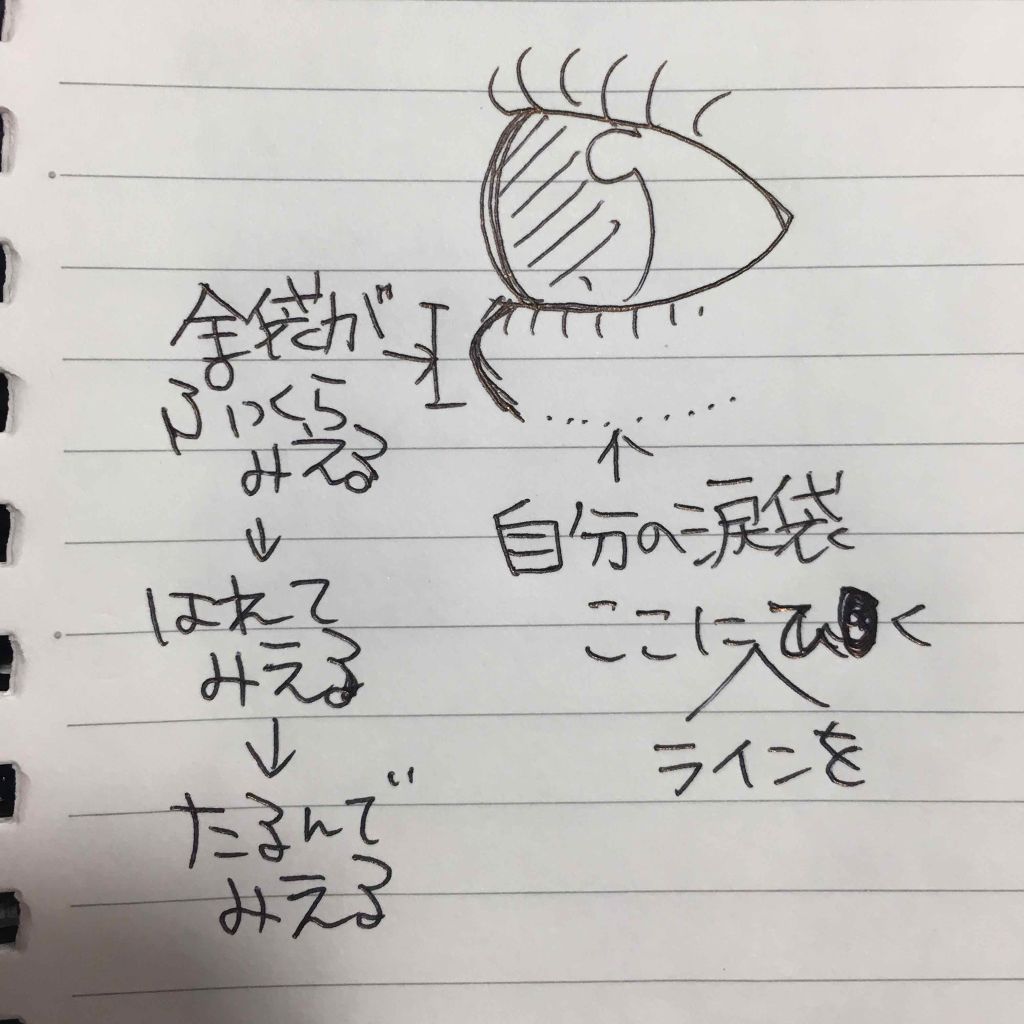 全袋が
ぷっくら
みえる
↓
はれて
みえる
↓
たるんで
みえる
↑
自分の涙袋
ここにひく
ラインを